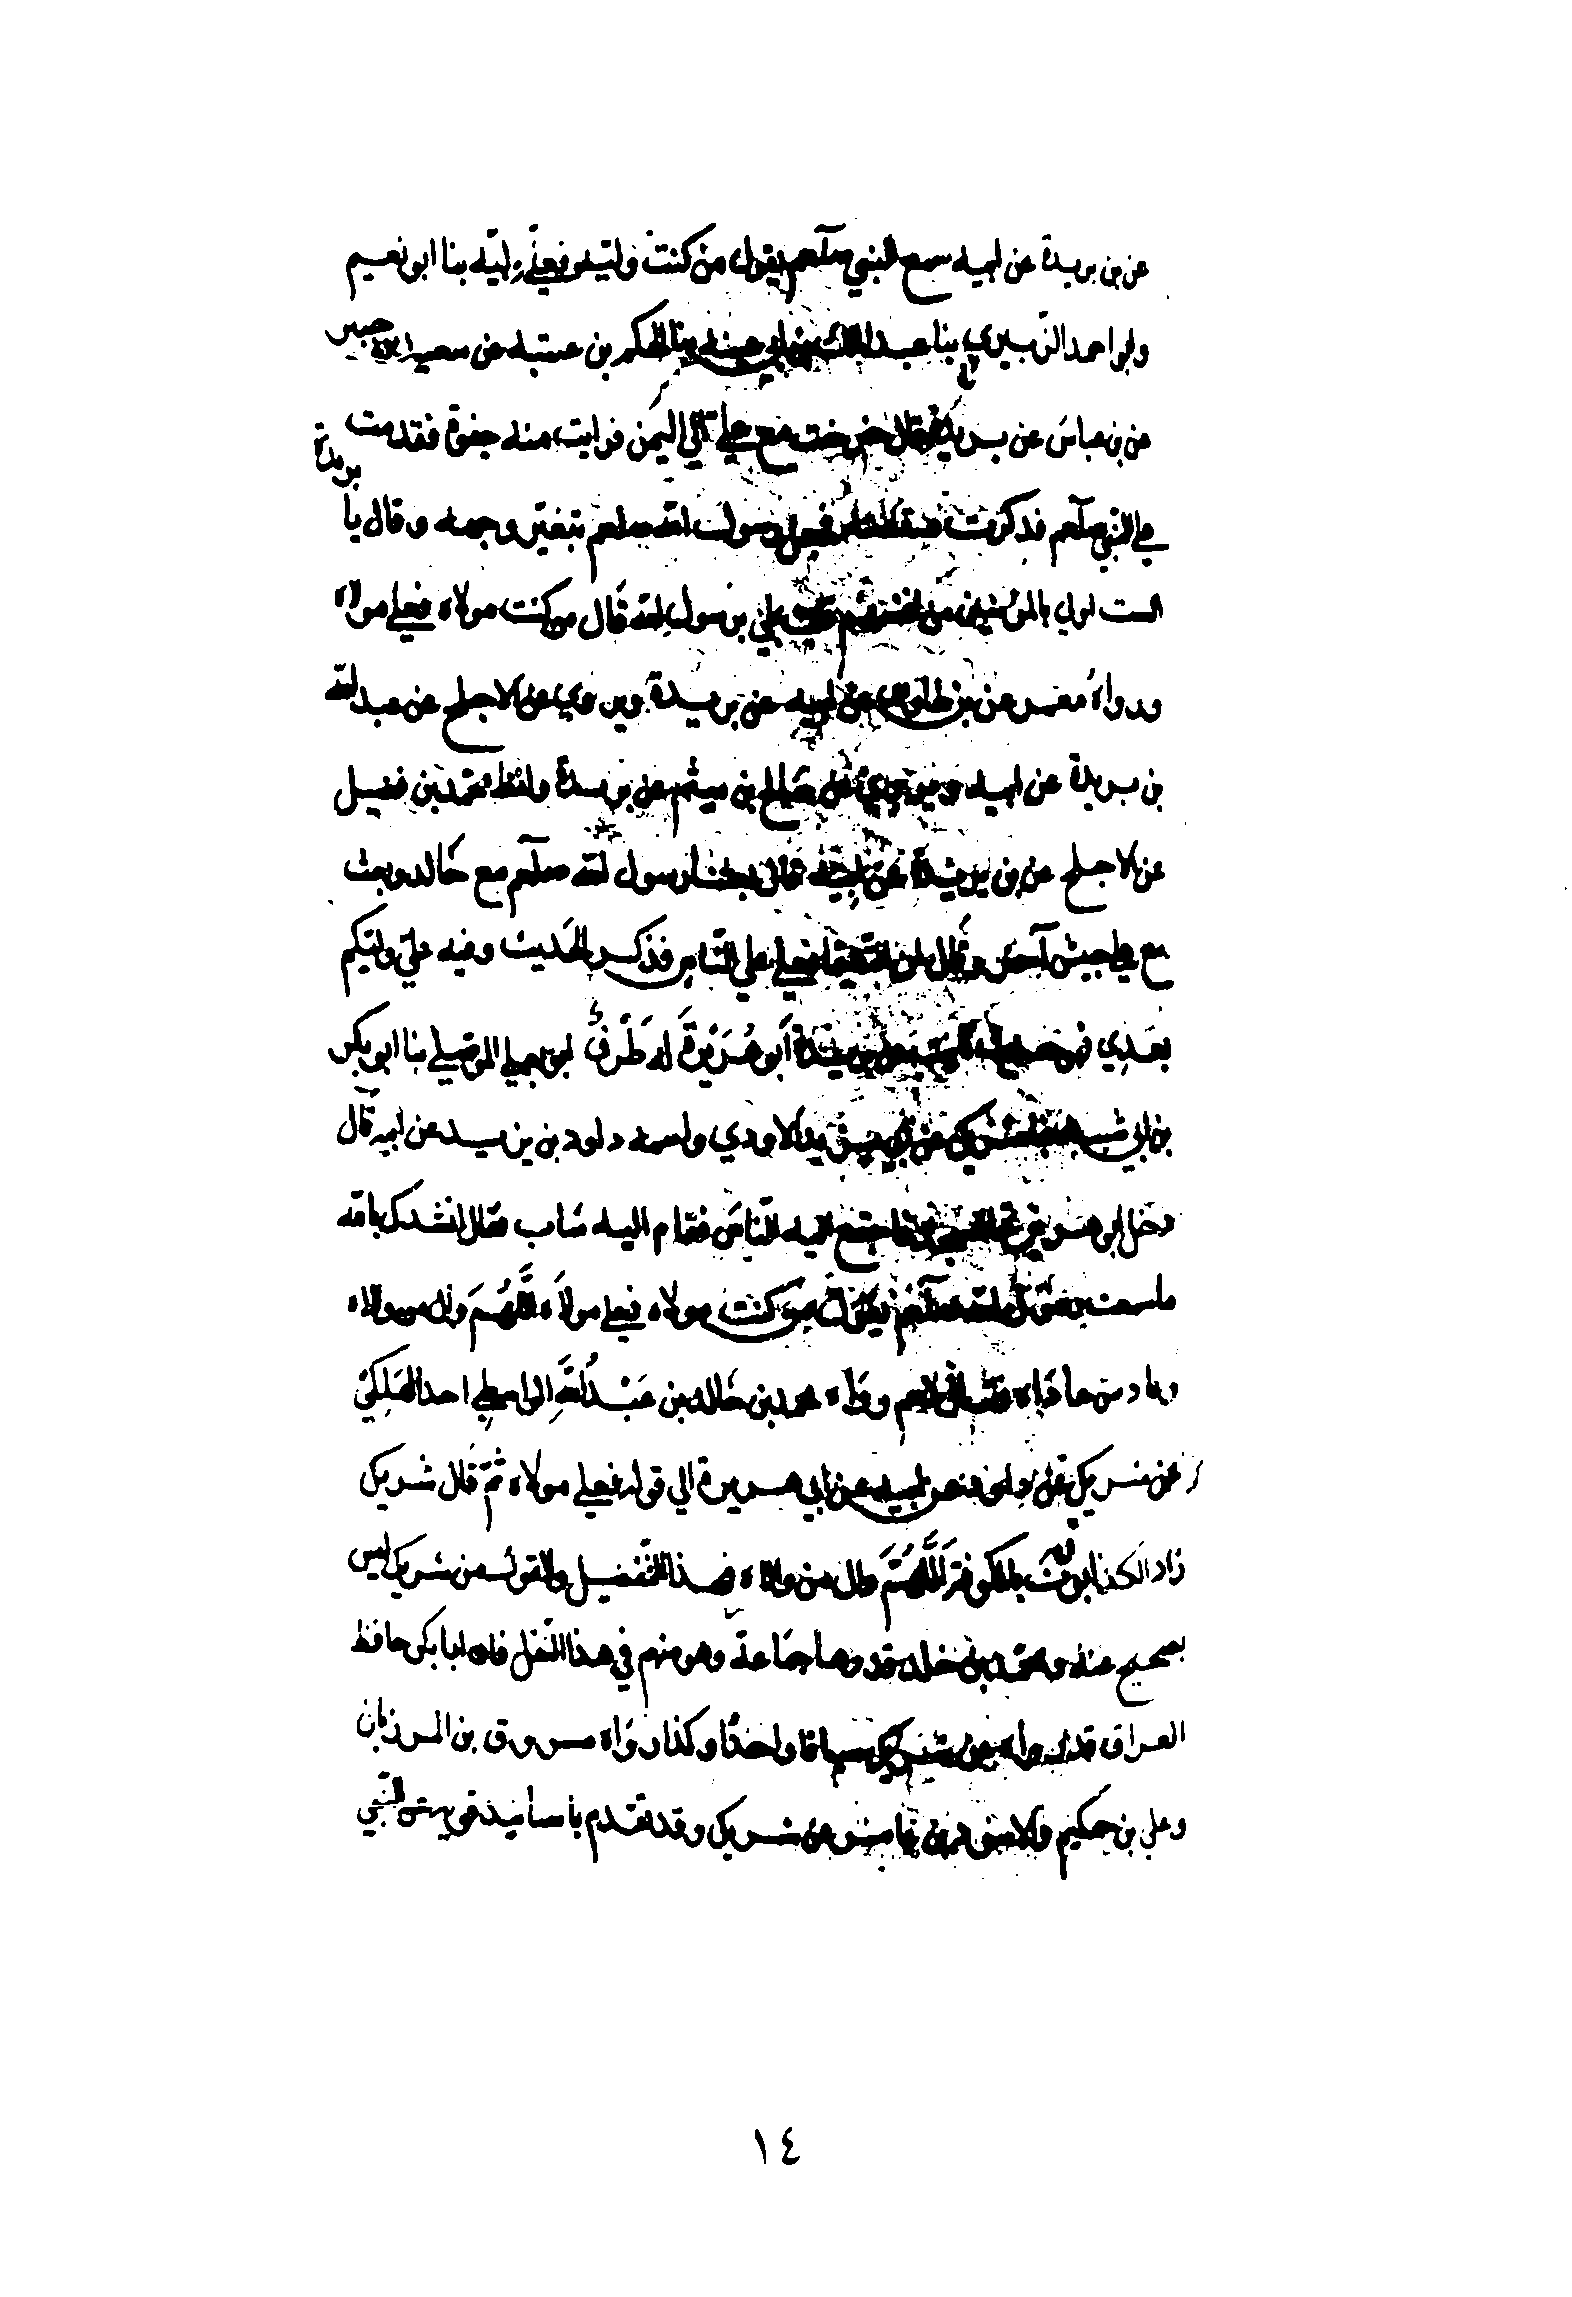 عن بن بريدة عن ابيه سمع النبي صلعم يقول من كنت وليه فعلي وليه بنا ابو نعيم
وابو احمد الزبيري بنا عبد الملك بن ابي غنية بنا الحكم بن عتيبة عن سعيد بن جبير
عن بن عباس عن بريدة قال خرجت مع علي الى اليمن فرايت منه جفوة فقدمت
على النبي صلعم فذكرت فتنقصته فجعل رسول الله صلعم يتغير وجهه وقال يا بريدة
الست اولى بالمؤمنين من انفسهم قلت بلى يرسول الله قال من كنت مولاه فعلي مولاه
ورواه معمر عن بن طاوس عن ابيه عن بريدة ويروي عن الاجلح عن عبد الله
بن بريدة عن ابيه ويروي عن صالح بن ميثم عن بن بريدة ولفظ محمد بن فضيل
عن الاجلح عن بن بريدة عن ابيه قال بعثنا رسول الله صلعم مع خالد وبعث
مع علي جيش آخر وقال ان التقيتما فعلي على الناس فذكر الحديث وفيه علي وليكم
بعدي أَبو هُرَيْرَةَ له طُرقٌ ابو يعلى الموصلي بنا ابو بكر
بن ابي شيبة بنا شريك عن ابي يزيد الاودي واسمه داود بن يزيد عن ابيه قال
دخل ابو هريرة المسجد فاجتمع اليه الناس فقام اليه شاب فقال انشدك بالله
اسمعت رسول الله صلعم يقول من كنت مولاه فعلي مولاه اللَّهُمَّ وال من والاه
وعاد من عاداه فقال نعم ورواه محمد بن خالد بن عَبْدُ اللهِ الواسطي احد الهَلكى
عن شريك عن داود عن ابيه عن ابي هريرة الى قوله فعلي مولاه ثم قال شريك
زاد الكذابون بالكوفة اللَّهُمَّ وال من والاه فهذا التفصيل والقول من شريك ليس
بصحيح عنه ومحمد بن خالد قد وهاه جماعة وهو متهم في هذا النقل فان ابا بكر حافظ
العراق قد رواه عن شريك سياقا واحدًا وكذا رواه مسروق بن المرزبان
وعلي بن حكيم والاسود بن عامر عن شريك وقد تقدم باسانيد قوية عن النبي
١٤